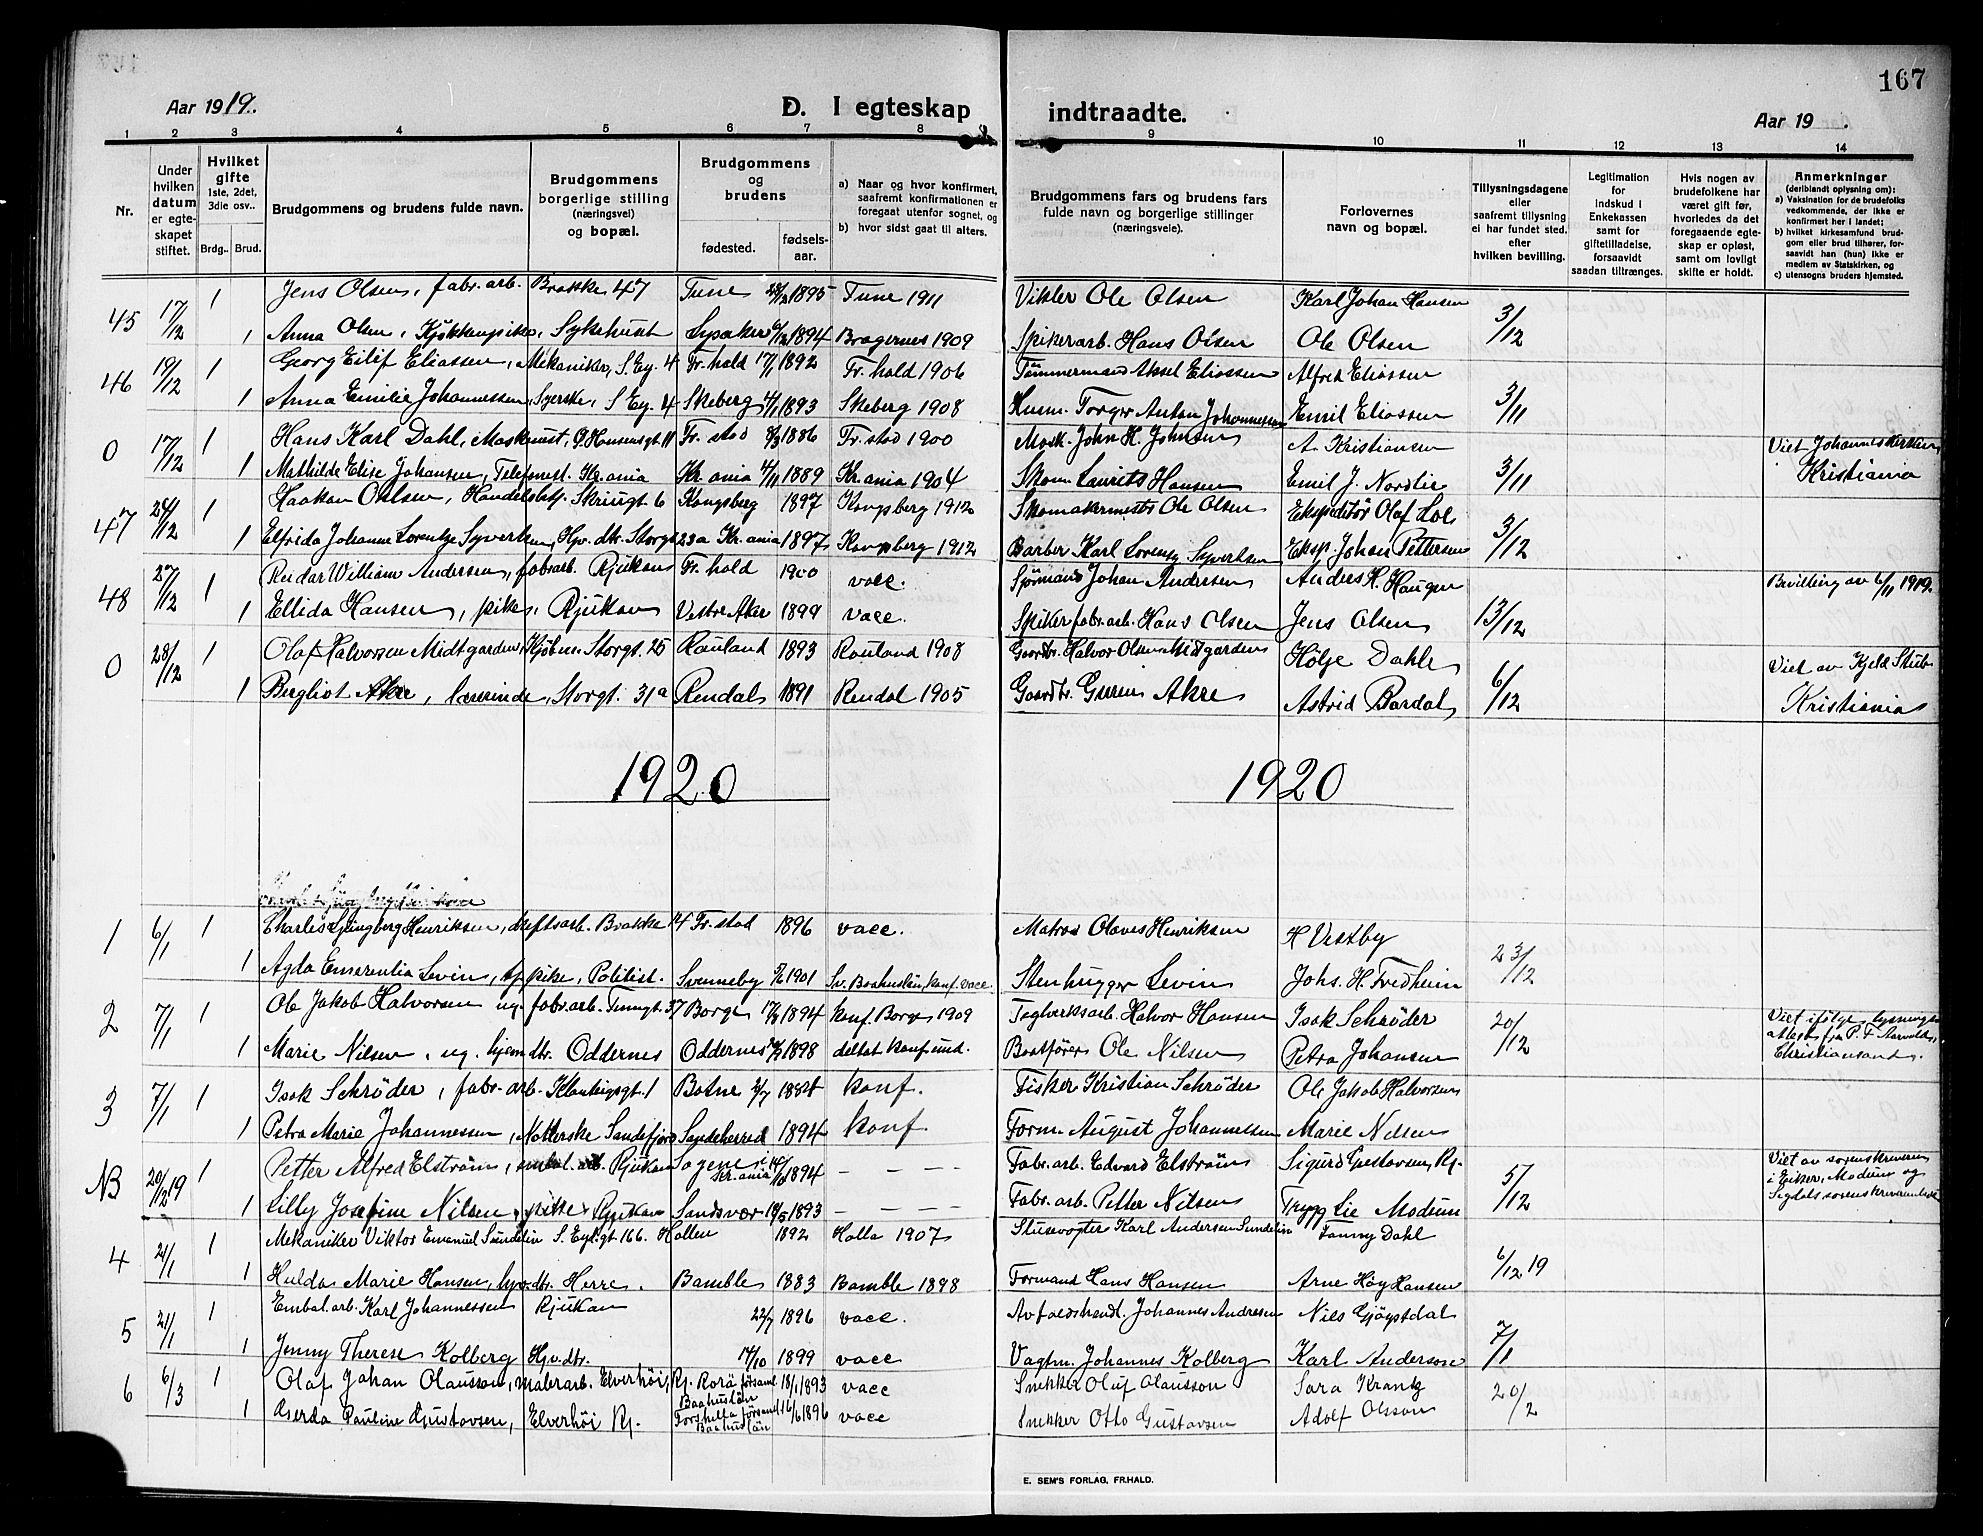 167
Aar 1919.
D. I egteskap indtraadte.
Aar 19 .
1 2 3 4 5 6 7 8 9 10 11 12 13 14
Nr.
Under hvilken datum er egteskapet stiftet.
Hvilket gifte 1ste, 2det, 3die osv..
Brdg. Brud.
Brudgommens og brudens fulde navn.
Brudgommens borgerlige stilling (næringsvei) og bopæl.
Brudgommens og brudens
fødested. fødsels-aar.
a) Naar og hvor konfirmert, saafremt konfirmationen er foregaat utenfor sognet, og
b) hvor sidst gaat til alters.
Brudgommens fars og brudens fars fulde navn og borgerlige stillinger (næringsveie).
Forlovernes navn og bopæl.
Tillysningsdagene eller saafremt tillysning ei har fundet sted, efter hvilken bevilling.
Legitimation for indskud i Enkekassen samt for giftetilladelse, forsaavidt saadan tiltrænges.
Hvis nogen av brudefolkene har været gift før, hvorledes da det foregaaende egteskap er opløst, samt om lovligt skifte er holdt.
Anmerkninger (deriblandt oplysning om):
a) Vaksination for de brudefolks vedkommende, der ikke er konfirmert her i landet;
b) hvilket kirkesamfund brudgom eller brud tilhører, forsaavidt han (hun) ikke er medlem av Statskirken, og
c) utensogns bruders hjemsted.
45 17/12 1 Jens Olsen, fabr. arb. Brakke 47 Tune 1895 Tune 1911 Vikler Ole Olsen Karl Johan Hansen 3/12
1 Anna Olsen, Kjøkkenpike, Sykehuset Lysaker 1894 Bragernes 1909 Spikerarb. Hans Olsen Ole Olsen
46 19/12 1 Georg Eilif Eliassen, Mekaniker, S. Ey. 4 Fr.hald 17/1 1892 Fr.hald 1906 Tømmermand Aksel Eliassen Alfred Eliassen 3/11
1 Anna Emilie Johannessen, Syerske, S. Ey. 4 Skeberg 4/1 1893 Skeberg 1908 Husm. Torger Anton Johannessen Emil Eliassen
0 17/12 1 Hans Karl Dahl, Maskinist, Fr.stad 1886 Fr.stad 1900 Mask. John H. Johnsen A. Kristiansen 3/11 Viet Johanneskirken
1 Mathilde Elise Johansen, Telefonist. Kr.ania Kr.ania 4/11 1889 Kr.ania 1904 Skom. Laurits Hansen Emil J. Nordlie Kristiania
47 24/12 1 Haakon Olsen, Handelsbetj. Skriugt 6 Kongsberg 1897 Kongsberg 1912 Skomakermester Ole Olsen Ekspeditør Olaf Lie 3/12
1 Elfrida Johanne Lorentze Syvertsen, Hpv. dtr. Storgt 23a Kr.ania 1897 Kongsberg 1912 Barber Karl Lorentz Syvertsen Eksp. Johan Pettersen
48 27/12 1 Reidar William Andersen, fabr. arb. Rjukan Fr.hald 1900 vacc. Sjømand Johan Andersen Andres H. Haugen 13/12 Bevilling av 6/11 1919.
1 Ellida Hansen, pike, Rjukan Vestre Aker 1899 vacc. Spiker fabr. arb. Hans Olsen Jens Olsen
0 28/12 1 Olaf Halvorsen Midtgarden, Kjøbm. Storgt. 25 Rauland 1893 Rauland 1908 Gaardbr. Halvor Olsen Midtgarden Hølje Dahle 6/12 Viet av Kjeld Stub
1 Bergliot Akre, lærerinde, Storgt. 31a Rendal 1891 Rendal 1905 Gaardbr. Akre Astrid Bardal Kristiania
1920 1920
1 6/1 1 Charles Ljungberg Henriksen, driftsarb. Brakke 14 Fr.stad 1896 vacc. Matros Olaves Henriksen H Vestby 23/12
1 Agda Emerentia Levin, tj. pike, Politist. Svenneby 1901 Sv. Baahuslän, konf. vacc. Stenhugger Levin Johs. H. Fredheim
2 7/1 1 Ole Jakob Halvorsen ug. fabr. arb. Tinngt. 37 Borge 1894 konf. Borge 1909 Teglverksarb. Halvor Hansen Isak Schrøder 20/12 Viet ifølge lysnings-
1 Marie Nilsen, ug. hjem. dtr. Oddernes Oddernes 1898 deltat konf. und. Baatfører Ole Nilsen Petra Johansen attest fra P. F. Christiansand.
3 7/1 1 Isak Schrøder, fabr. arb. Botne 2/7 1884 konf. Fisker Kristian Schrøder Ole Jakob Halvorsen
1 Petra Marie Johannessen, Sandefjord Sandeherred 1894 konf. Form. August Johannessen Marie Nilsen
NB 20/12 19 1 Petter Alfred Elstrøm, embal. arb. Rjukan Sagene i Kr.ania 1894 – – – – Fabr. arb. Edvard Elstrøm Sigurd Gustavsen, Rj. 5/12 Viet av sorenskriveren
1 Lilly Josefine Nilsen, pike, Rjukan Sandsvær 18/5 1893 – – – – Fabr. arb. Petter Nilsen Trygg Lie Modum i Eiker, Modum og Sigdals sorenskriverembede
4 21/1 1 Mekaniker Viktor Emanuel Sundelin S. Eydsgt 166. Hollen 1892 Holla 1907 Slusevogter Karl Andersen Sundelin Fanny Dahl 6/12 19
1 Hulda Marie Hansen, hpv. dtr. Herre. Bamble 1883 Bamble 1898 Formand Hans Hansen Arne Høy Hansen
5 21/1 1 Embal. arb. Karl Johannessen Rjukan 22/7 1896 vacc. Avfaldshandl. Johannes Andresen Nils Gjøystdal 7/1
1 Jenny Therese Kolberg Hjv. dtr. 14/10 1899 vacc Vagtm. Johannes Kolberg Karl Anderson
6 6/3 1 Olaf Johan Olausson, malerarb. Elverhöi, Rj. Rorö församl Baahuslän 18/1 1893 vacc Snekker Oluf Olausson Sara Krantz 20/2
1 Gerda Pauline Gustavsen, Elverhöi Rj. Forshella församl Baahuslän 16/6 1896 vacc Snekker Otto Gustavsen Adolf Olsson
E. SEM'S FORLAG, FR.HALD.